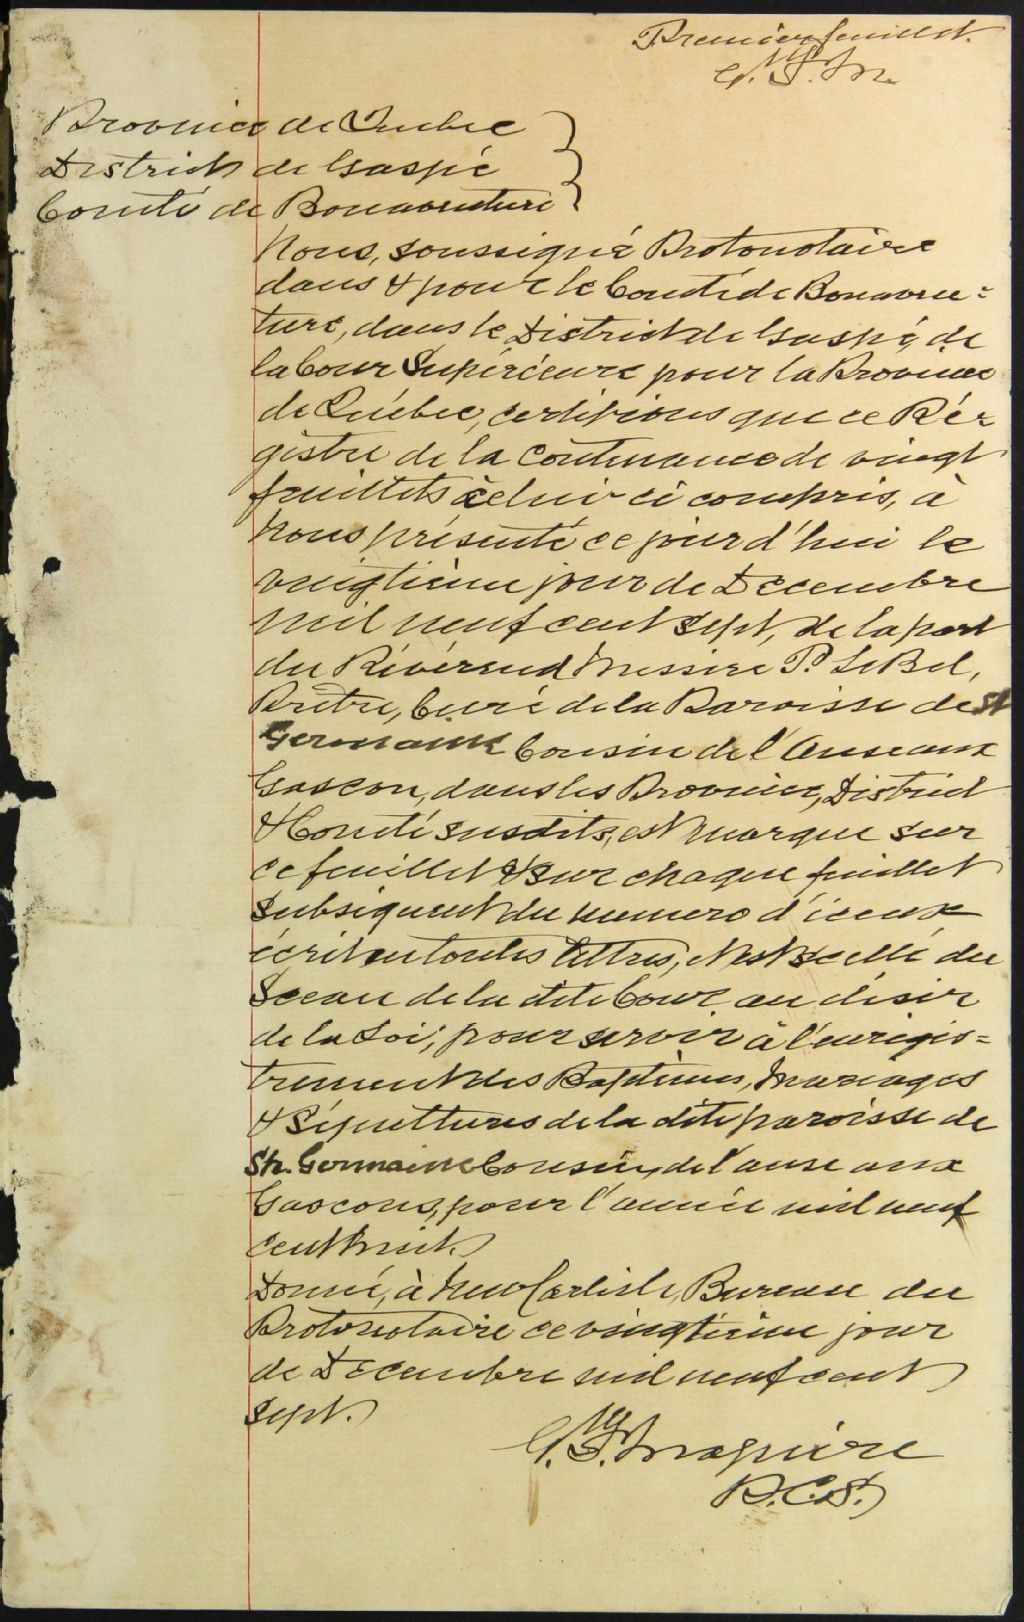 Premier feuillet.
Wm. G. M.
Province de Quebec
District de Gaspé
Comté de Bonaventure
Nous, soussigné Protonotaire
dans & pour le Comté de Bonaven=
ture, dans le District de Gaspé, de
la Cour Supérieure pour la Province
de Québec, certifions que ce Ré=
gistre de la Contenance de vingt
feuillets celui-ci compris, à
Nous présenté ce jour d'hui le
vingtième jour de Decembre
mil neuf cent sept, de la part
du Révérend Messire P. LeBel,
Prêtre, Curé de la Paroisse de St
Germaine Cousin de l'Anse aux
Gascon, dans les Province, District
& Comté susdits, est marque sur
ce feuillet & sur chaque feuillet
subsequent du numero d'iceux
écrit en toutes lettres, et est scellé du
Sceau de la dite Cour, au désir
de la Loi, pour servir à l'enrégis=
trement des Baptêmes, Mariages
& Sépultures de la dite paroisse de
Ste. Germaine Cousin, de l'anse aux
Gascons, pour l'année mil neuf
cent huit.
Donné, à New Carlisle, Bureau du
Protonotaire ce vingtième jour
de Decembre mil neuf cent
sept.
Maguire
P.C.S.